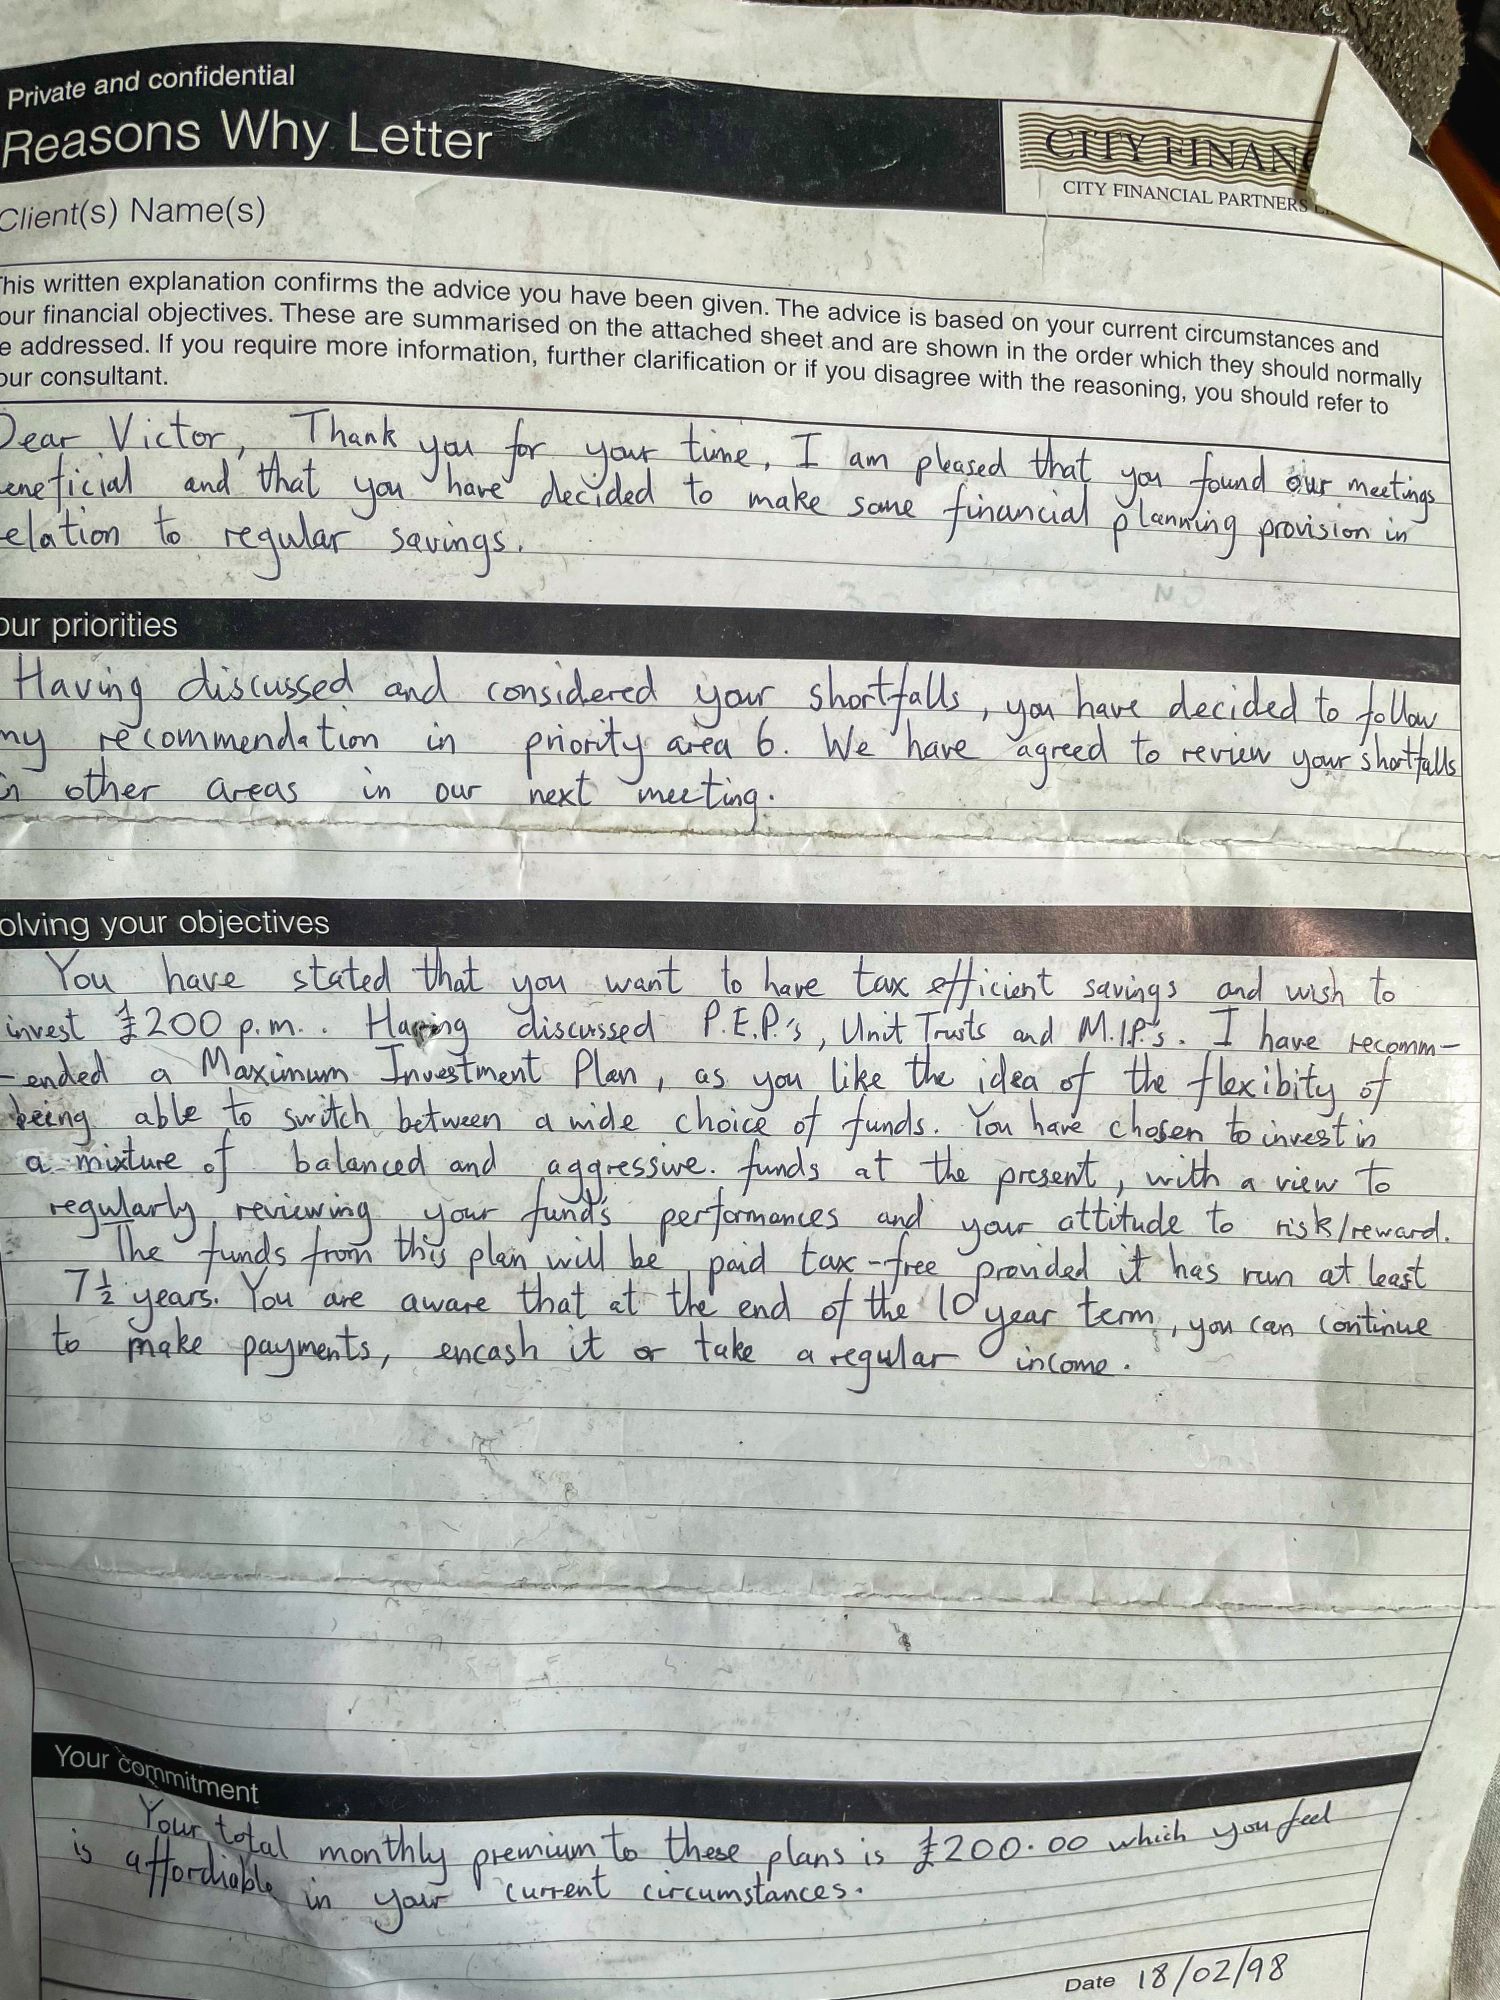 Private and confidential
Reasons Why Letter
CITY FINANC
CITY FINANCIAL PARTNERS L
Client(s) Name(s)
his written explanation confirms the advice you have been given. The advice is based on your current circumstances and
our financial objectives. These are summarised on the attached sheet and are shown in the order which they should normally
e addressed. If you require more information, further clarification or if you disagree with the reasoning, you should refer to
our consultant.
Dear Victor, Thank you for your time, I am pleased that you found our meetings
eneficial and that you have decided to make some financial planning provision in
elation to regular savings.
our priorities
Having discussed and considered your shortfalls, you have decided to follow
my recommendation in priority area 6. We have agreed to review your shortfalls
in other areas in our next meeting.
olving your objectives
You have stated that you want to have tax efficient savings and wish to
invest £200 p.m.. Having discussed P.E.P.'s, Unit Trusts and M.I.P.'s. I have recomm-
-ended a Maximum Investment Plan, as you like the idea of the flexibity of
being able to switch between a wide choice of funds. You have chosen to invest in
a mixture of balanced and aggressive. funds at the present, with a view to
regularly reviewing your fund's performances and your attitude to risk/reward.
The funds from this plan will be paid tax-free provided it has run at least
7½ years. You are aware that at the end of the 10 year term, you can continue
to make payments, encash it or take a regular income.
Your commitment
Your total monthly premium to these plans is £200.00 which you feel
is affordiable in your current circumstances.
Date 18/02/98